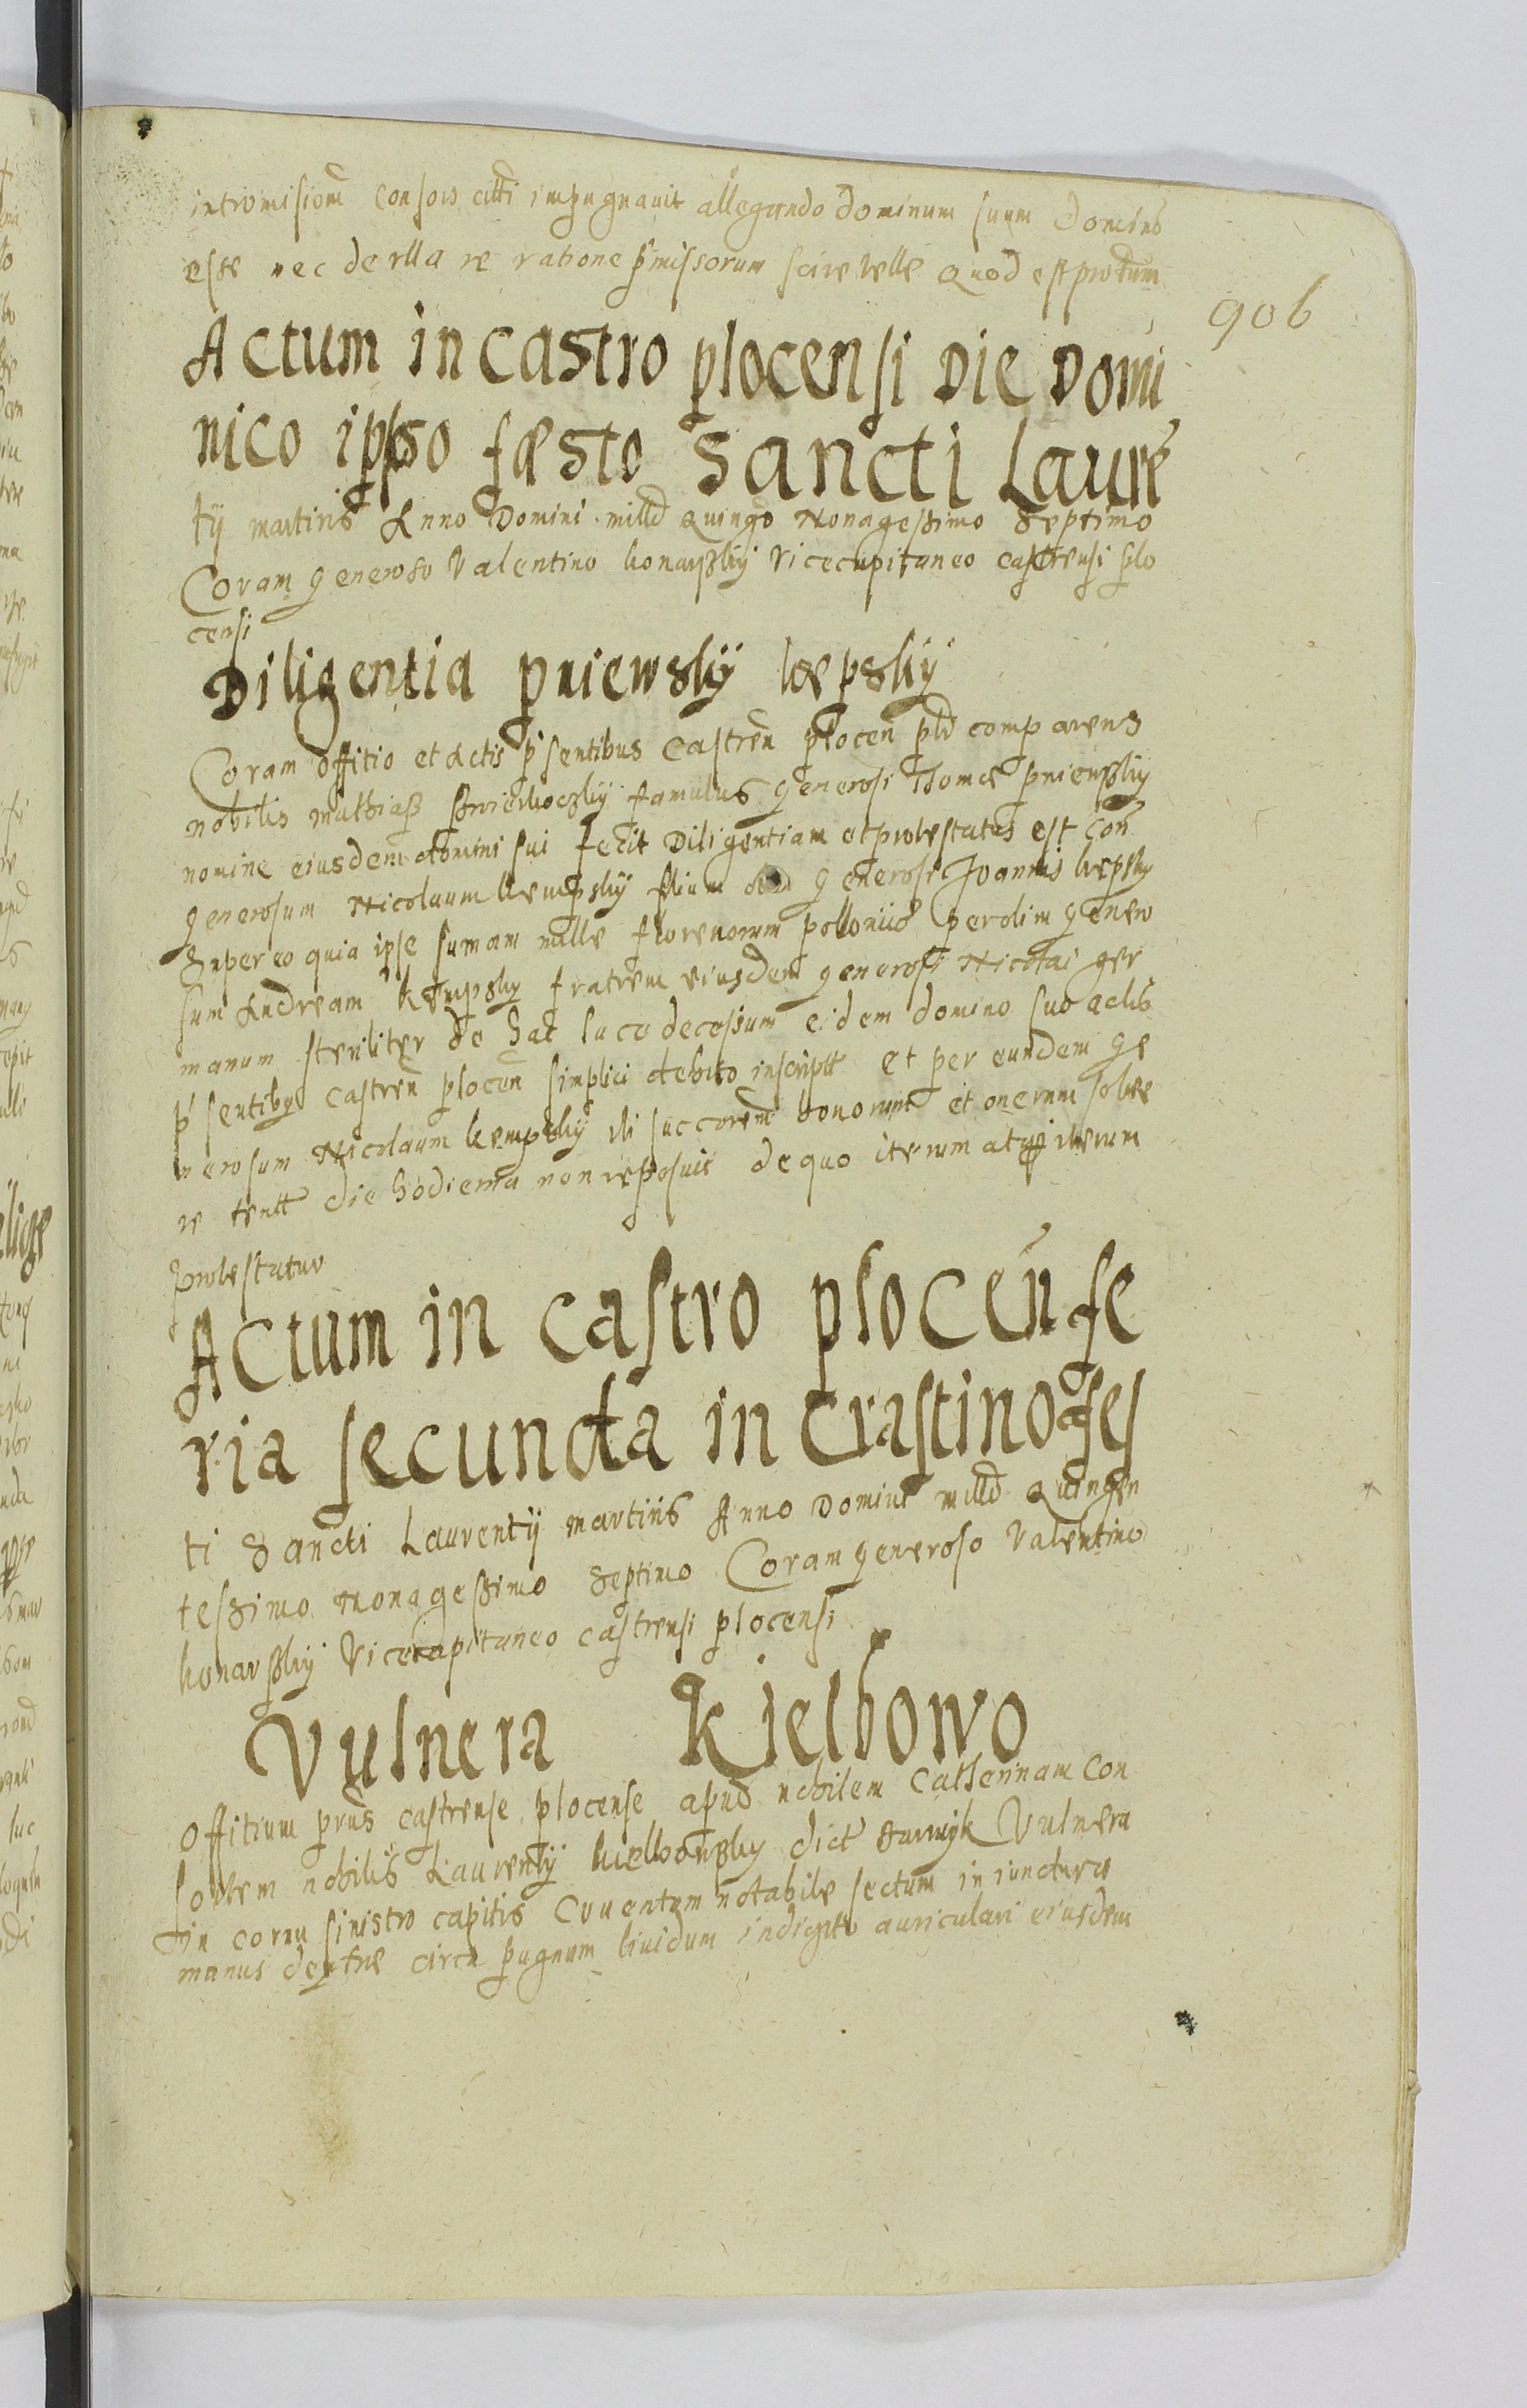 intromisiom consors citti impugnauit allegando dominum suum Dominū
esse nec de illa re ratione pmissorum scire velle quod est protum
906
Actum in castro plocensi Die Domi
nico ipso fæsto Sancti Lauré
tÿ martiris Anno Domini milld Quingo Nonagessimo Septimo
Coram generoso Valentino konarßkÿ Vicecapitaneo castrensi plo
censi
Diligentia pniewskÿ kępskÿ
Coram offitio et actis p'sentibus Castren̄ plocen̄ pld comparens
nobilis mathiaß famulus generosi Thomæ pnieußkÿ
nomine eiusdem domini sui fecit Diligentiam et protestatus est Con̄
generosum Nicolaum kempskÿ filium olim generosi Joannis kępsky
Super eo quia ipse sumam mille florenorum pollonic̄ per olim genero
sum Andream kempsky fratrem eiusdem generosi Nicolai ger
manum steriliter de hac luce decessum eidem domino suo actis
p'sentibus castren̄ plocen̄ simplici debito inscriptt et per eundem ge
nerosum Nicolaum kempskÿ uti succorem̄ bonorum et onerum solue
re tentt die hodierna non reposuit de quo iterum atqz iterum
protestatur
Actum in castro plocen̄ fe
ria secunda in Crastino fes
ti Sancti Laurentÿ martiris Anno Domini milld Quingen
tessimo Nonagessimo Septimo Coram generoso Valentino
konarßkÿ Vicecapitaneo castrensi plocensi
Vulnera Kielbowo
Offitium prns castrense plocense apud nobilem Catherinam Con
sortem nobilis Laurentÿ kielbowsky dict Vulnera
in cornu sinistro capitis Cruentum notabile sectum in iuncture
manus dextræ circa pugnum liuidum in digito auriculari eiusdem